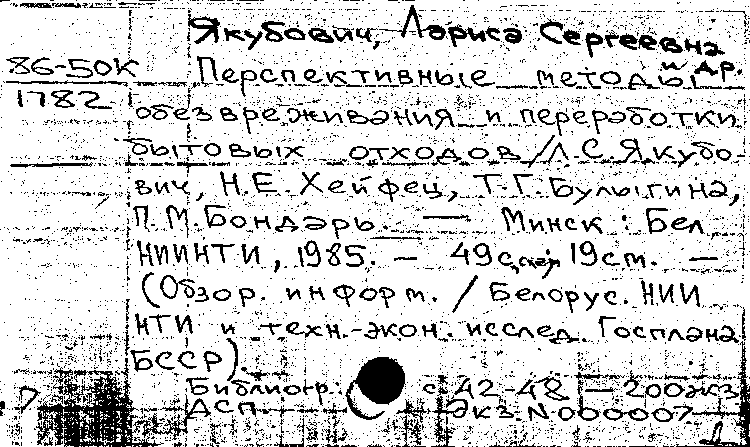 Якубович, Лариса Сергеевна
и др.
86-50К
1782
Перспективные методы
обезвреживания и переработки
бытовых отходов / Л.С. Якубо-
вич, Н.Е. Хейфец, Т.Г. Булыгина,
П.М. Бондарь. — Минск : Бел
НИИНТИ, 1985. — 49с., 19см. —
(Обзор. информ. / Белорус. НИИ
НТИ и техн.-экон. исслед. Госплана
БССР).
Библиогр. с. 42-48 — 200экз
ДСП Экз. N000007